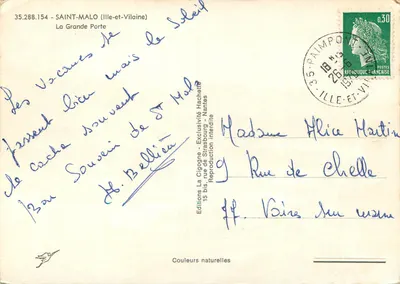 35.288.154 - SAINT-MALO (Ille-et-Vilaine)
La Grande Porte
Les vacances se
passent bien mais le soleil
se cache souvent
Bon Souvenir de St Malo
Editions La Cigogne - Exclusivité Hachette
15 bis, rue de Strasbourg - Nantes
Reproduction interdite
0,30
REPUBLIQUE FRANÇAISE
35 - PAIMPONT
ILLE-ET-
Madame Alice Martin
9 Rue de Chelle
77. Vaires sur marne
Couleurs naturelles